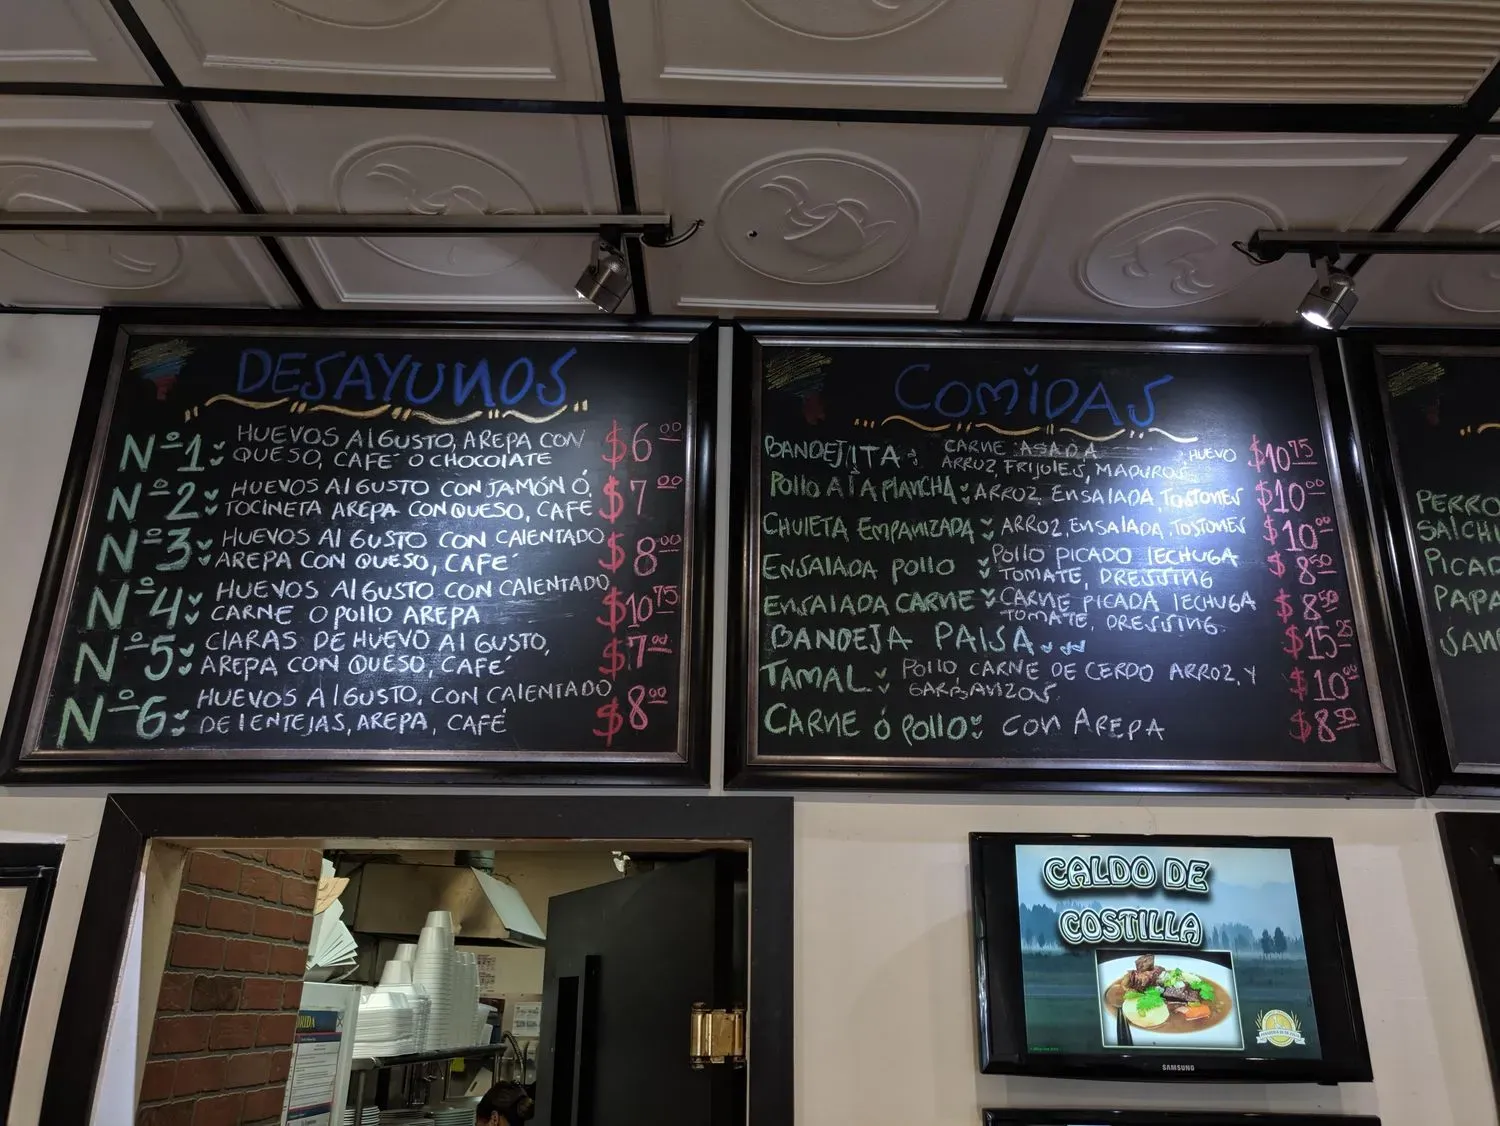 DESAYUNOS
Nº1: HUEVOS Al GUSTO, AREPA CON $6.00
QUESO, CAFÉ O CHOCOlATE
Nº2: HUEVOS Al GUSTO CON JAMÓN Ó, $7.00
TOCINETA AREPA CON QUESO, CAFÉ
Nº3: HUEVOS Al GUSTO CON CAlENTADO $8.00
AREPA CON QUESO, CAFÉ
Nº4: HUEVOS Al GUSTO CON CAlENTADO, $10.75
CARNE O POllO AREPA
Nº5: ClARAS DE HUEVO Al GUSTO, $7.00
AREPA CON QUESO, CAFÉ
Nº6: HUEVOS Al GUSTO, CON CAlENTADO $8.00
DE lENTEJAS, AREPA, CAFÉ
COMIDAS
BANDEJITA: CARNE ASADA HUEVO $10.75
ARROZ, FRIJOlES, MADUROS
POllO A lA PlANCHA: ARROZ, ENSAlADA, TOSTONES $10.00
CHUlETA EMPANIZADA: ARROZ, ENSAlADA, TOSTONES $10.00
ENSAlADA POllO: POllO PICADO lECHUGA $8.50
TOMATE, DRESSING
ENSAlADA CARNE: CARNE PICADA lECHUGA $8.50
TOMATE, DRESSING.
BANDEJA PAISA $15.25
TAMAL: POllO CARNE DE CERDO ARROZ, Y $10.00
GARBANZOS
CARNE Ó POllO: CON AREPA $8.50
PERRO
SAlCHI
PICAD
PAPA
CALDO DE
COSTILLA
SAMSUNG